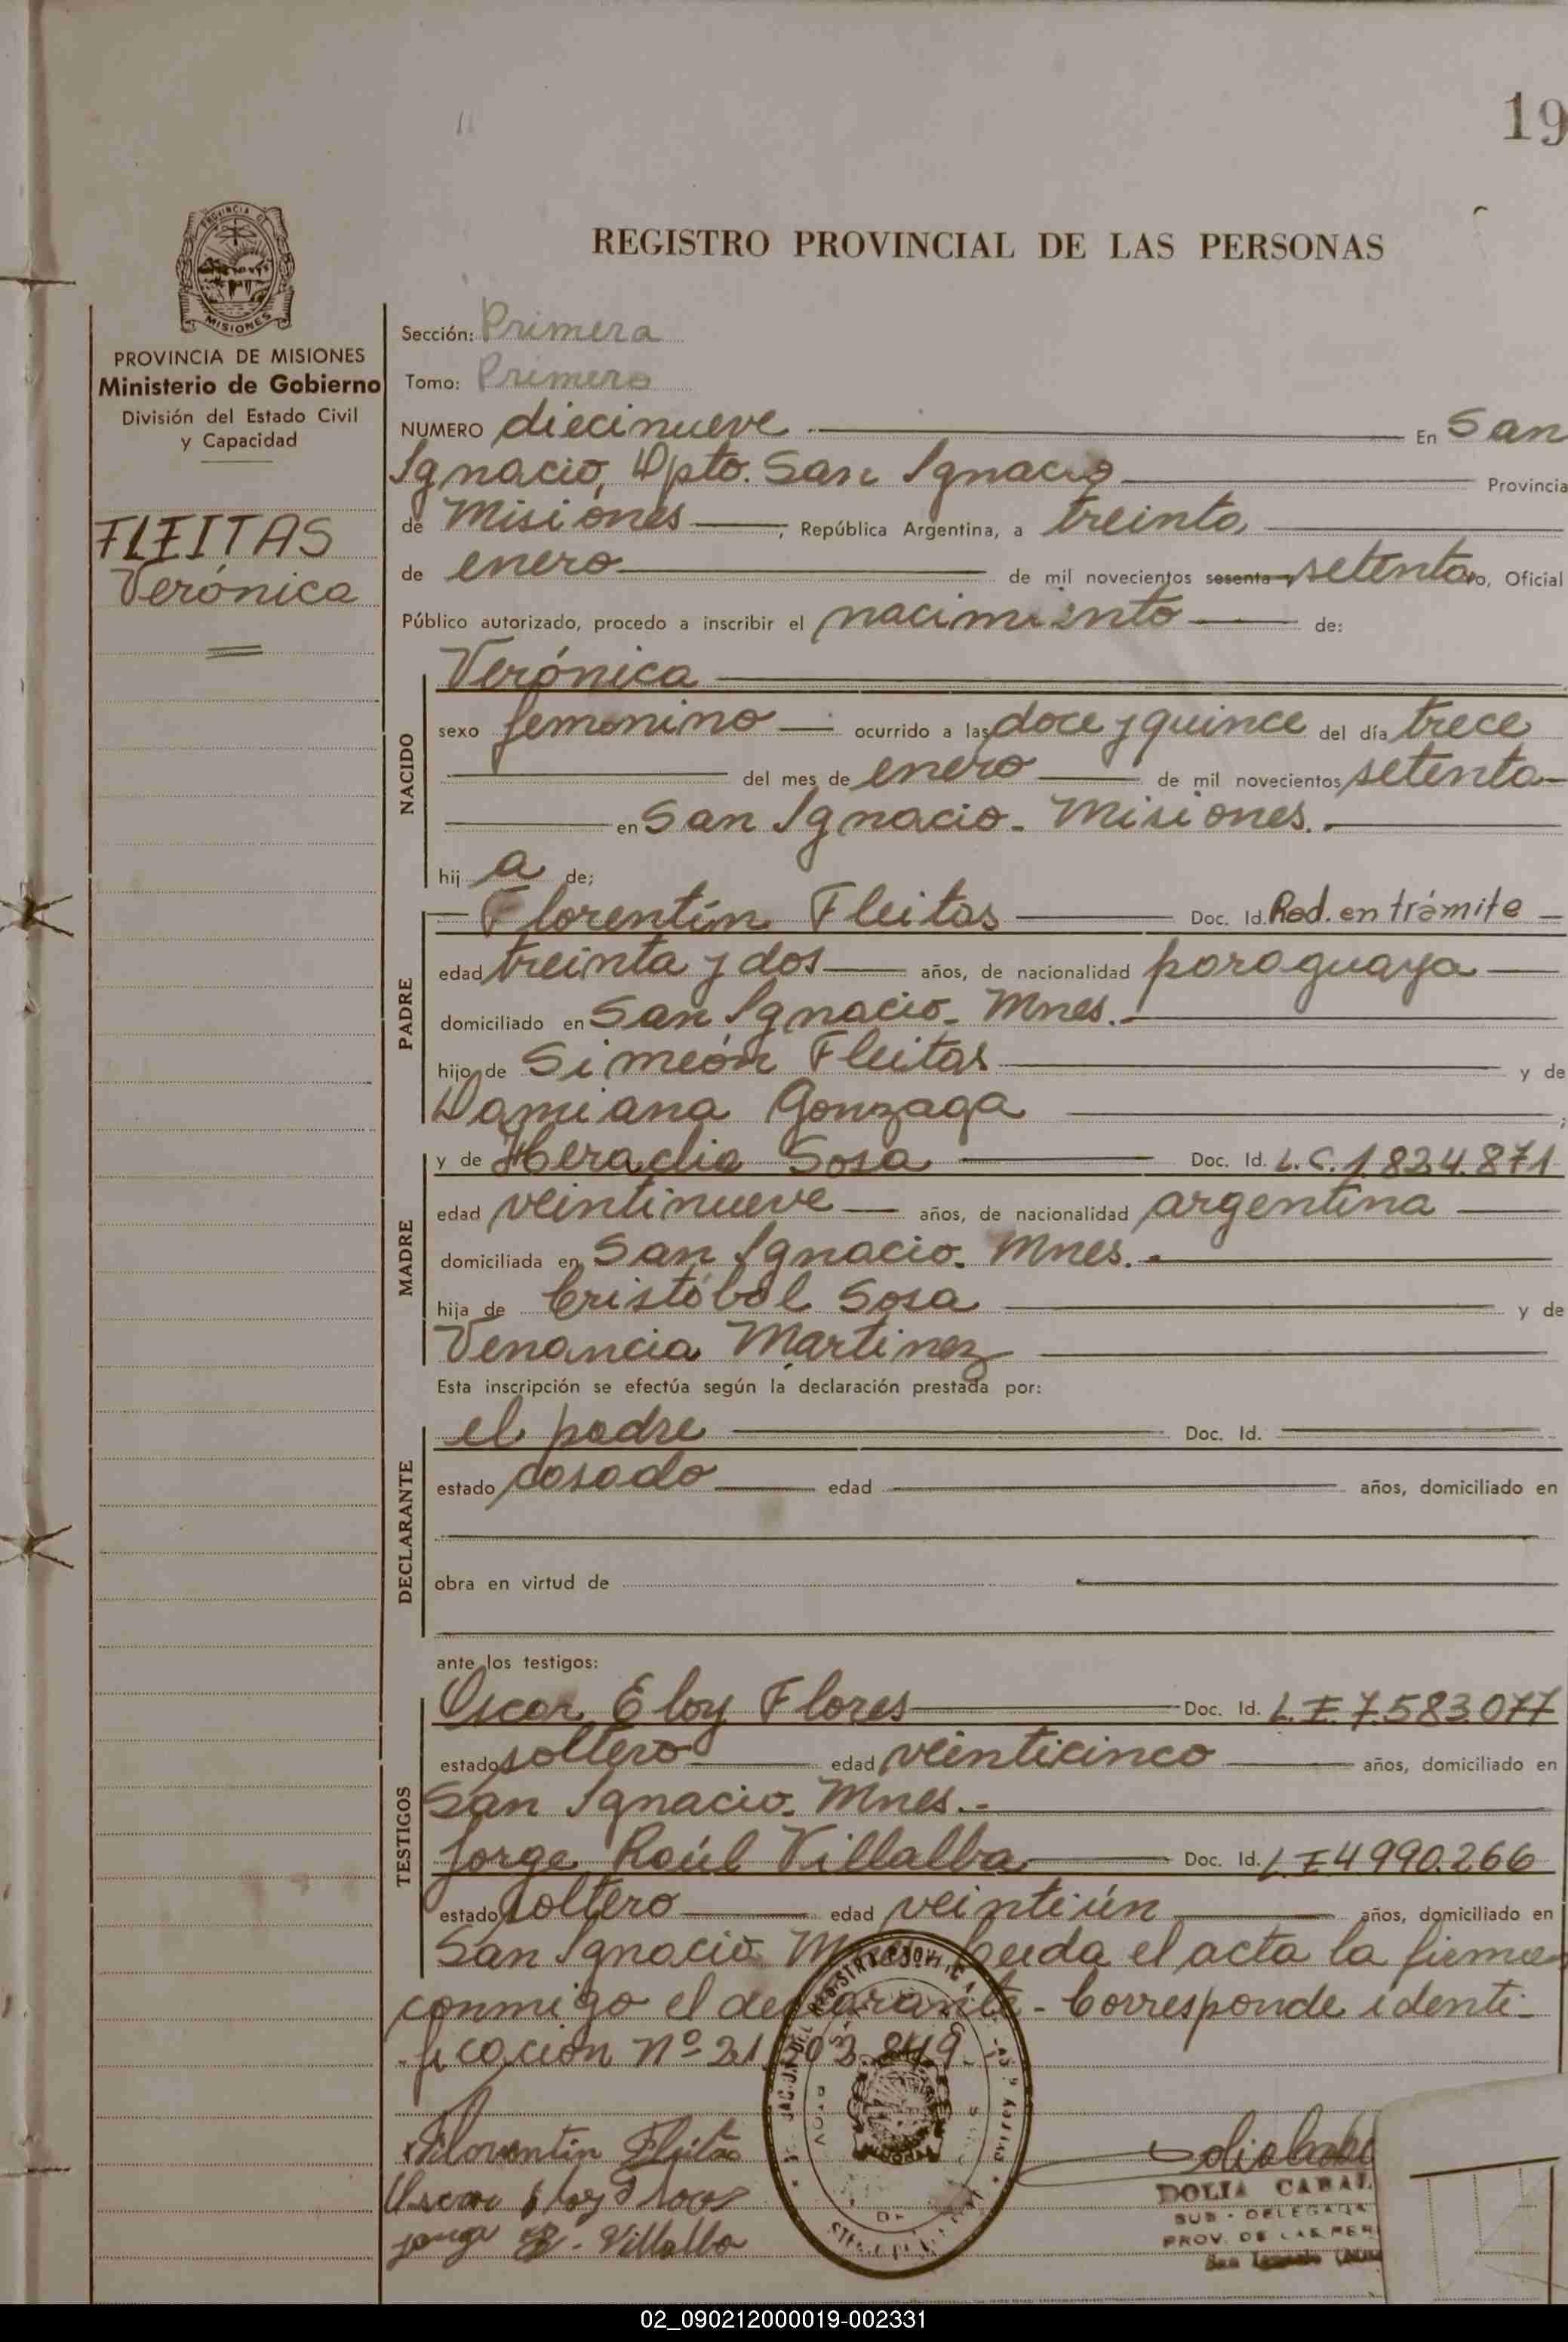 19
REGISTRO PROVINCIAL DE LAS PERSONAS
PROVINCIA DE
MISIONES
PROVINCIA DE MISIONES
Ministerio de Gobierno
División del Estado Civil
y Capacidad
FLEITAS
Verónica
Sección: Primera
Tomo: Primero
NUMERO diecinueve En San
Ignacio, Dpto. San Ignacio Provincia
de Misiones, República Argentina, a treinta
de enero de mil novecientos sesenta setenta yo, Oficial
Público autorizado, procedo a inscribir el nacimiento de:
NACIDO
Verónica
sexo femenino ocurrido a las doce y quince del día trece
del mes de enero de mil novecientos setenta
en San Ignacio - Misiones.
hij a de;
PADRE
Florentín Fleitas Doc. Id. Rad. en trámite
edad treinta y dos años, de nacionalidad paraguaya
domiciliado en San Ignacio - Mnes.
hijo de Simeón Fleitas y de
Damiana Gonzaga ;
MADRE
y de Heraclia Sosa Doc. Id. L.C. 1.824.871
edad veintinueve años, de nacionalidad argentina
domiciliada en San Ignacio - Mnes.
hija de Cristóbal Sosa y de
Venancia Martinez
Esta inscripción se efectúa según la declaración prestada por:
DECLARANTE
el padre Doc. Id.
estado casado edad años, domiciliado en
obra en virtud de
ante los testigos:
TESTIGOS
Oscar Eloy Flores Doc. Id. L.E. 7.583.077
estado soltero edad veinticinco años, domiciliado en
San Ignacio - Mnes.-
Jorge Raúl Villalba Doc. Id. L.E 4990.266
estado soltero edad veintiún años, domiciliado en
San Ignacio el acta la firma
conmigo el declarante - Corresponde identi-
ficación nº 21
Florentín Fleitas
Oscar Eloy Flores
Jorge R. Villalba
DOLIA CABAL
SUB - DELEGADA
PROV. DE LAS PER
San Ignacio
02_090212000019-002331